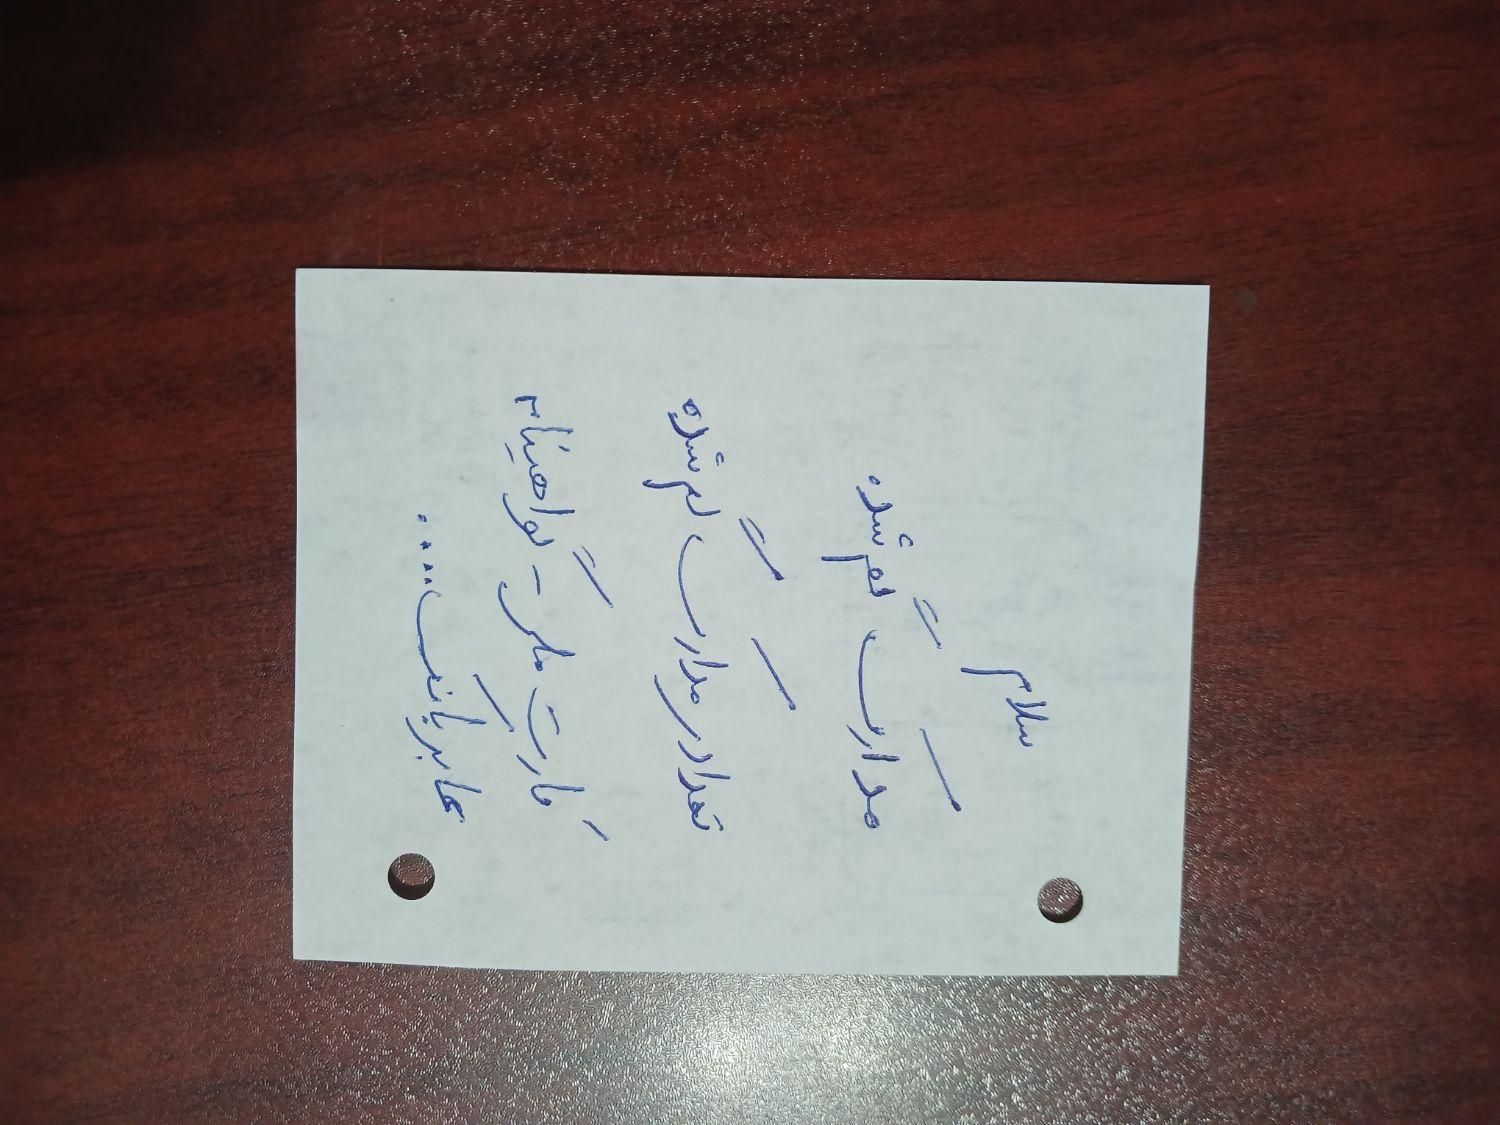 سلام
مدارک گم شده
تعداد مدارک گم شده
کارت ملی - گواهینامه
عابر بانک ....